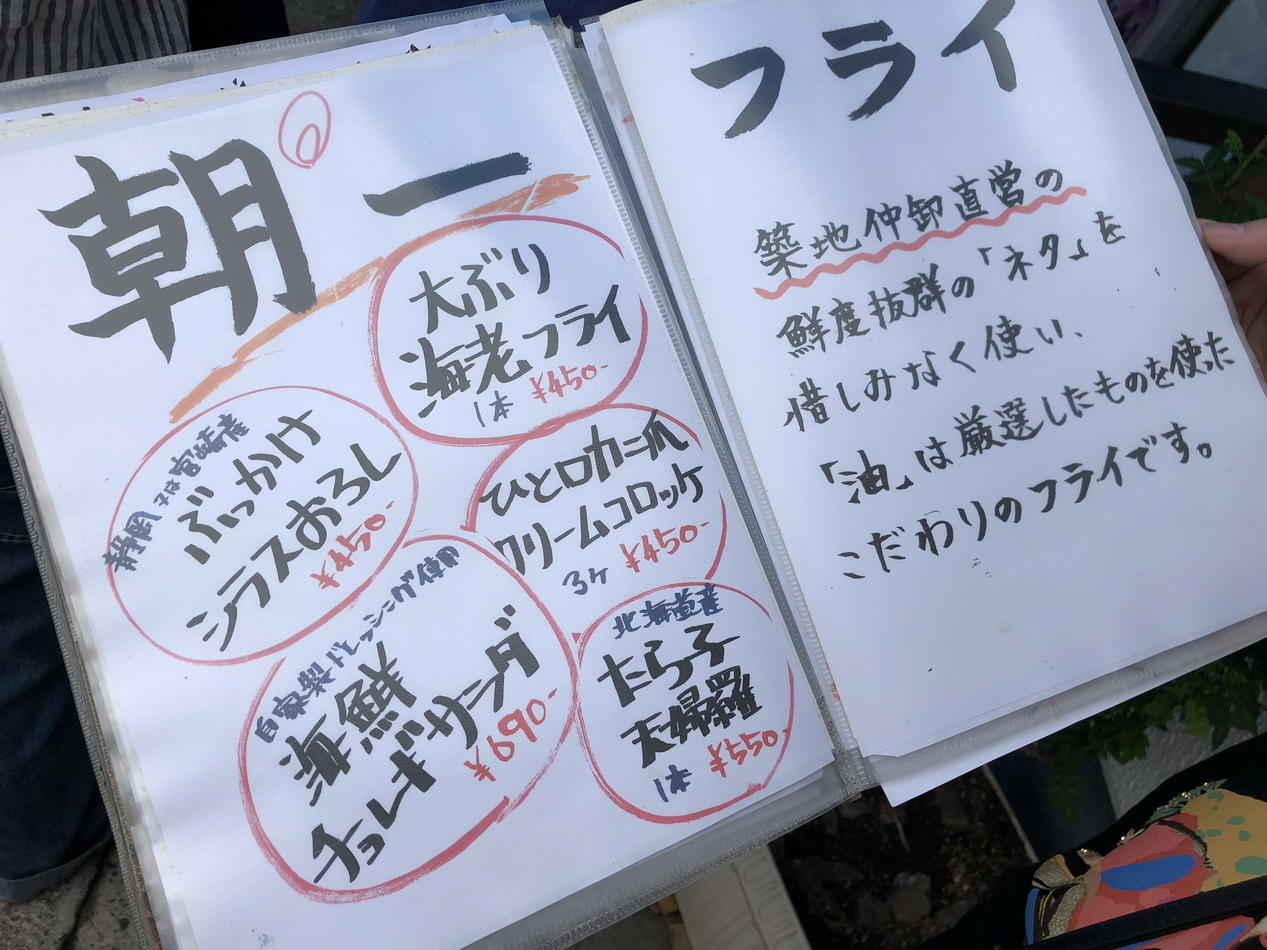 朝一
大ぶり
海老フライ
1本 ¥450-
静岡又は宮崎産
ぶっかけ
シラスおろし
¥450-
ひと口カニ爪
クリームコロッケ
3ヶ ¥450-
自家製ドレッシング使用
海鮮
チョレギサラダ
¥690-
北海道産
たら子
天婦羅
1本 ¥550-
フライ
築地仲卸直営の
鮮度抜群の「ネタ」を
惜しみなく使い、
「油」は厳選したものを使った
こだわりのフライです。